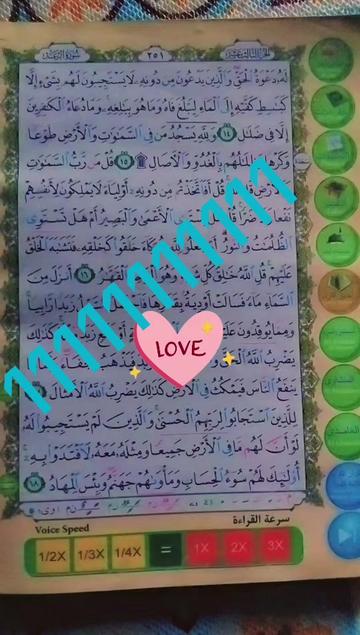 الجزء الثالث عشر ٢٥١ سورة الرعد
لَهُ دَعْوَةُ الْحَقِّ وَالَّذِينَ يَدْعُونَ مِن دُونِهِ لَا يَسْتَجِيبُونَ لَهُم بِشَيْءٍ إِلَّا
كَبَاسِطِ كَفَّيْهِ إِلَى الْمَاءِ لِيَبْلُغَ فَاهُ وَمَا هُوَ بِبَالِغِهِ وَمَا دُعَاءُ الْكَافِرِينَ
إِلَّا فِي ضَلَالٍ ١٤ وَلِلَّهِ يَسْجُدُ مَن فِي السَّمَاوَاتِ وَالْأَرْضِ طَوْعًا
وَكَرْهًا وَظِلَالُهُم بِالْغُدُوِّ وَالْآصَالِ ۩ ١٥ قُلْ مَن رَّبُّ السَّمَاوَاتِ
وَالْأَرْضِ قُلِ قُلْ أَفَاتَّخَذْتُم مِّن دُونِهِ أَوْلِيَاءَ لَا يَمْلِكُونَ لِأَنفُسِهِمْ
نَفْعًا وَلَا ضَرًّا قُلْ هَلْ يَسْتَوِي الْأَعْمَىٰ وَالْبَصِيرُ أَمْ هَلْ تَسْتَوِي
الظُّلُمَاتُ وَالنُّورُ أَمْ جَعَلُوا لِلَّهِ شُرَكَاءَ خَلَقُوا كَخَلْقِهِ فَتَشَابَهَ الْخَلْقُ
عَلَيْهِمْ قُلِ اللَّهُ خَالِقُ كُلِّ وَهُوَ الْوَاحِدُ الْقَهَّارُ ١٦ أَنزَلَ مِنَ
السَّمَاءِ مَاءً فَسَالَتْ أَوْدِيَةٌ بِقَدَرِهَا زَبَدًا رَّابِيًا
وَمِمَّا يُوقِدُونَ عَلَيْهِ أَوْ مَتَاعٍ زَبَدٌ كَذَٰلِكَ
يَضْرِبُ اللَّهُ الْحَقَّ فَيَذْهَبُ جُفَاءً
يَنفَعُ النَّاسَ فَيَمْكُثُ فِي الْأَرْضِ كَذَٰلِكَ يَضْرِبُ اللَّهُ الْأَمْثَالَ
لِلَّذِينَ اسْتَجَابُوا لِرَبِّهِمُ الْحُسْنَىٰ وَالَّذِينَ لَمْ يَسْتَجِيبُوا لَهُ
لَوْ أَنَّ لَهُم مَّا فِي الْأَرْضِ جَمِيعًا وَمِثْلَهُ مَعَهُ لَافْتَدَوْا بِهِ
أُولَٰئِكَ لَهُمْ سُوءُ الْحِسَابِ وَمَأْوَاهُمْ جَهَنَّمُ وَبِئْسَ الْمِهَادُ ١٨
LOVE
11111111111111
Voice Speed سرعة القراءة
1/2X 1/3X 1/4X = 1X 2X 3X